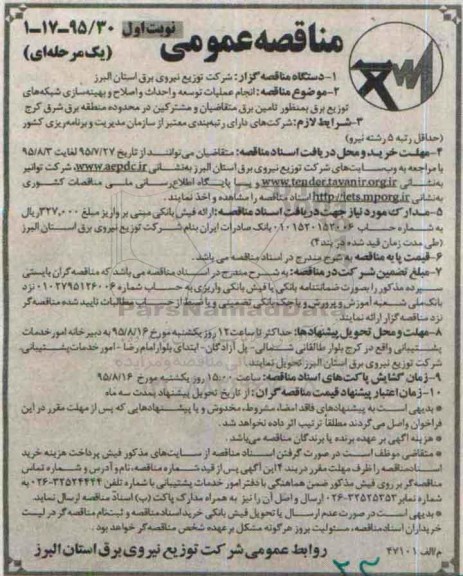 مناقصه عمومی
نوبت اول
۱-۱۷-۹۵/۳۰
(یک مرحله‌ای)
۱-دستگاه مناقصه گزار: شرکت توزیع نیروی برق استان البرز
۲-موضوع مناقصه: انجام عملیات توسعه و احداث و اصلاح و بهینه‌سازی شبکه‌های
توزیع برق بمنظور تامین برق متقاضیان و مشترکین در محدوده منطقه برق شرق کرج
۳-شرایط لازم: شرکت‌های دارای رتبه‌بندی معتبر از سازمان مدیریت و برنامه‌ریزی کشور
(حداقل رتبه ۵ رشته نیرو)
۴-مهلت خرید و محل دریافت اسناد مناقصه: متقاضیان می‌توانند از تاریخ ۹۵/۷/۲۷ لغایت ۹۵/۸/۳
با مراجعه به وب‌سایت‌های شرکت توزیع نیروی برق استان البرز به نشانی www.aepdc.ir، شرکت توانیر
به‌نشانی www.tender.tavanir.org.ir و یا پایگاه اطلاع‌رسانی ملی مناقصات کشوری
به‌نشانی http://iets.mporg.ir اسناد مناقصه را مشاهده و اخذ نمایند.
۵-مدارک مورد نیاز جهت دریافت اسناد مناقصه: ارائه فیش بانکی مبنی بر واریز مبلغ ۳۲۷,۰۰۰ ریال
به شماره حساب ۰۱۰۱۵۲۰۱۵۲۰۰۶ بانک صادرات ایران بنام شرکت توزیع نیروی برق استان البرز
(طی مدت زمان قید شده در بند۴)
۶-قیمت پایه مناقصه به شرح مندرج در اسناد مناقصه می باشد.
۷-مبلغ تضمین شرکت در مناقصه: به شرح مندرج در اسناد مناقصه می باشد که مناقصه گران بایستی
سپرده مذکور را بصورت ضمانتنامه بانکی یا فیش بانکی واریزی به حساب شماره ۰۱۰۲۷۹۵۱۲۶۰۰۶ نزد
بانک ملی شعبه آموزش و پرورش و یا چک بانکی تضمینی و یا ضبط از حساب مطالبات تایید شده مناقصه گر
نزد مناقصه گزار ارائه نمایند.
۸-مهلت و محل تحویل پیشنهادها: حداکثر تا ساعت ۱۲ روز یکشنبه مورخ ۹۵/۸/۱۶ به دبیرخانه امور خدمات
پشتیبانی واقع در کرج بلوار طالقانی شمالی- پل آزادگان- ابتدای بلوار امام رضا - امور خدمات پشتیبانی
شرکت توزیع نیروی برق استان البرز تحویل نمایند.
۹-زمان گشایش پاکت‌های اسناد مناقصه: ساعت ۱۵:۰۰ روز یکشنبه مورخ ۹۵/۸/۱۶
۱۰-زمان اعتبار پیشنهاد قیمت مناقصه گران: از تاریخ تحویل پیشنهاد بمدت سه ماه
* بدیهی است به پیشنهادهای فاقد امضاء، مشروط، مخدوش و یا پیشنهادهایی که پس از مهلت مقرر در این
فراخوان واصل می گردند مطلقاً ترتیب اثر داده نخواهد شد.
* هزینه آگهی بر عهده برنده یا برندگان مناقصه می‌باشد.
* متقاضی موظف است در صورت گرفتن اسناد مناقصه از سایت‌های مذکور فیش پرداخت هزینه خرید
اسناد مناقصه را ظرف مهلت مقرر در بند ۴ این آگهی پس از قید شماره مناقصه، نام و آدرس و شماره تماس
مناقصه گر بر روی فیش مذکور ضمن هماهنگی با دفتر امور خدمات پشتیبانی با شماره تلفن ۳۲۵۲۴۴۴۴-۰۲۶ به
شماره نمابر ۳۲۵۲۵۲۵۲-۰۲۶ ارسال و اصل آن را نیز به همراه مدارک پاکت (ب) اسناد مناقصه ارسال نماید.
* بدیهی است در صورت عدم ارسال یا تحویل فیش بانکی خرید اسناد مناقصه و ثبت نام مناقصه گر در لیست
خریداران اسناد مناقصه، مسئولیت بروز هرگونه مشکل بر عهده شخص مناقصه گر خواهد بود.
م الف ۴۷۱۰۱
روابط عمومی شرکت توزیع نیروی برق استان البرز
ParsNamadData